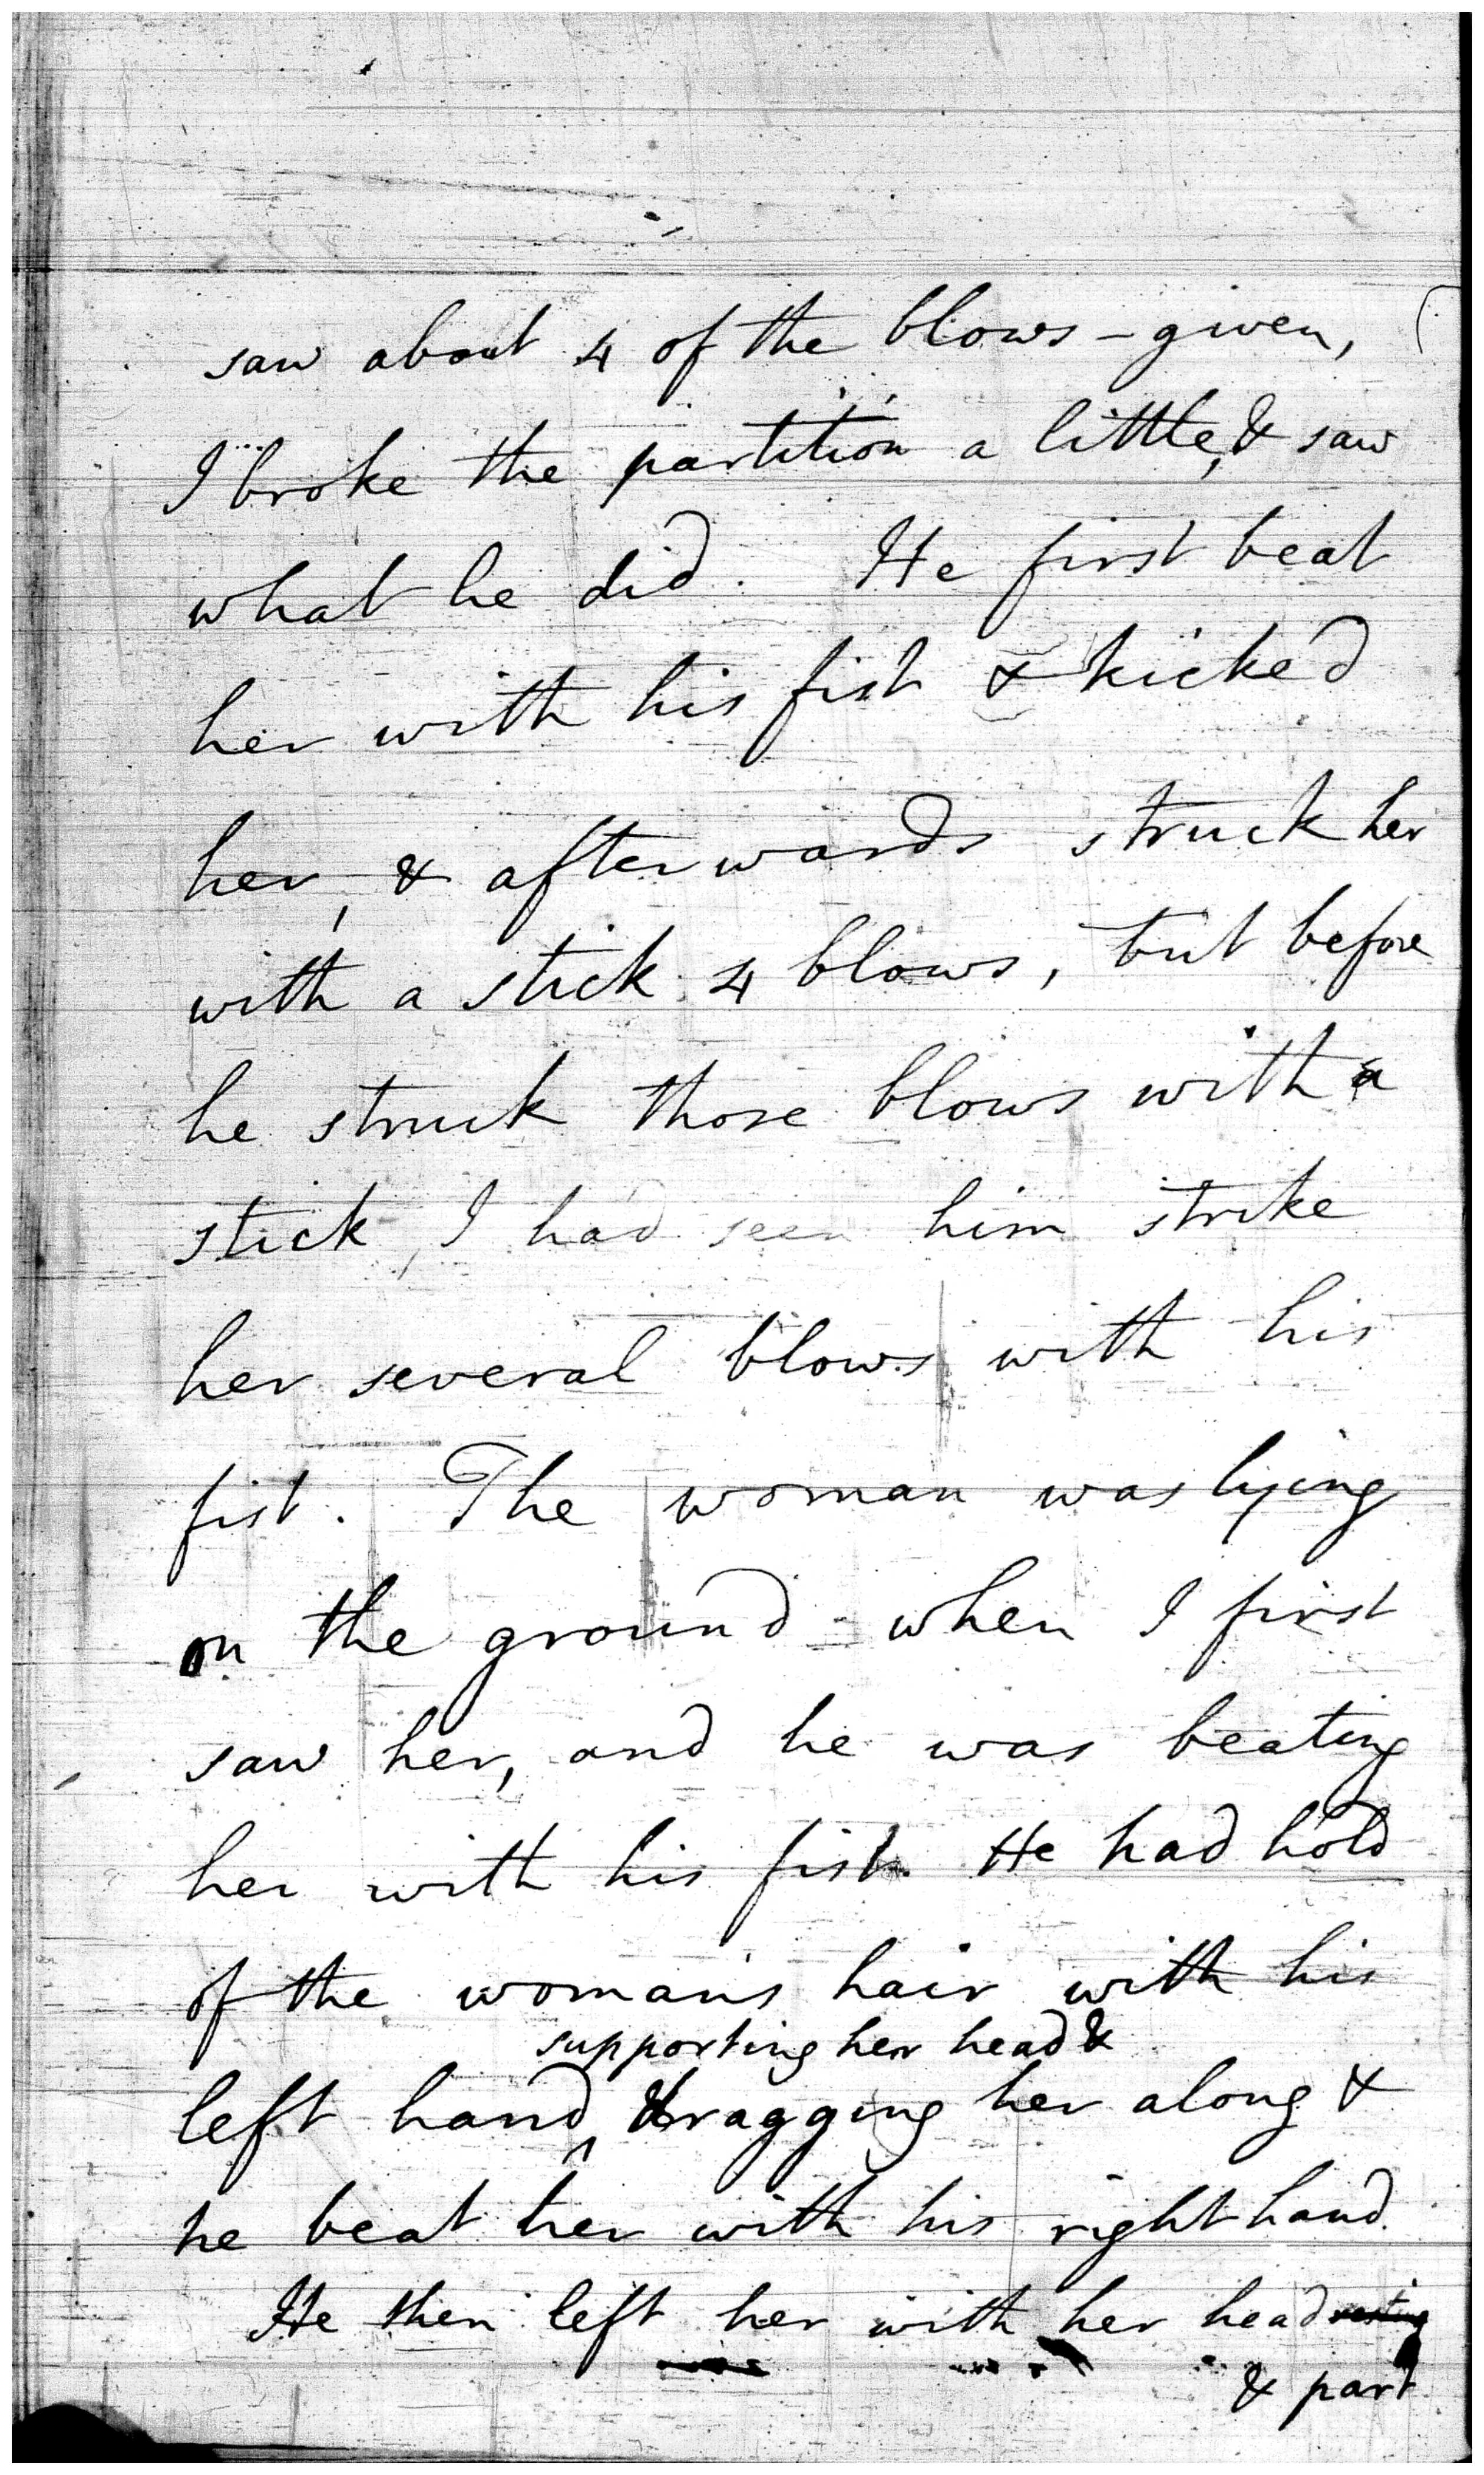 saw about 4 of the blows - given,
I broke the partition a little, & saw
what he did. He first beat
her with his fist & kicked
her, & afterwards struck her
with a stick 4 blows, but before
he struck those blows with a
stick, I had seen him strike
her several blows with his
fist. The woman was lying
on the ground when I first
saw her, and he was beating
her with his fist. He had hold
of the woman's hair with his
supporting her head &
left hand, dragging her along &
he beat her with his right hand.
He then left her with her head resting
& part